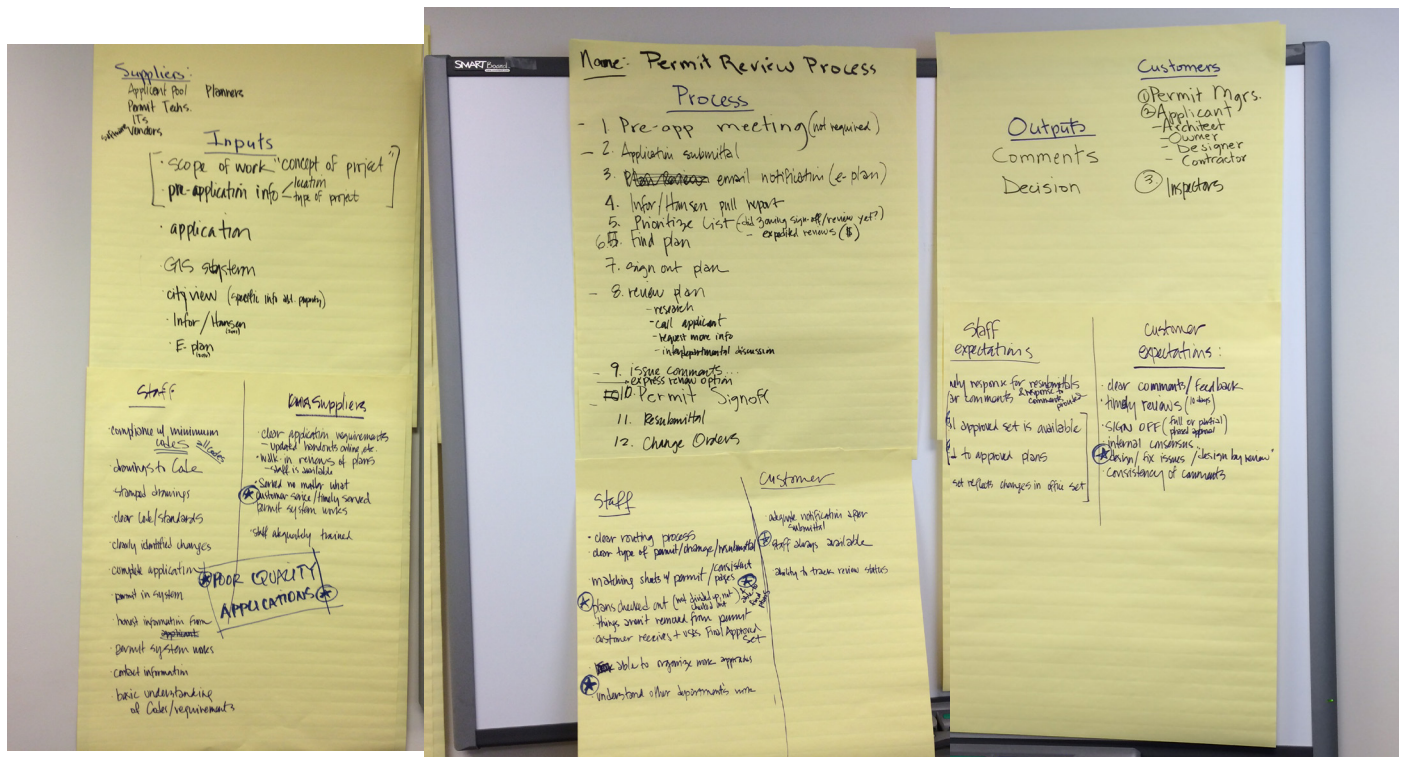 Suppliers:
Applicant Pool Planners
Permit Techs.
ITs
software Vendors
Inputs
· scope of work "concept of project"
· pre-application info < location
type of project
· application
· GIS system
· cityview (specific info abt. property)
· Infor/Hansen
· E-plan
Staff
· compliance w/ minimum
codes all codes
· drawings to Code
· stamped drawings
· clear Code/standards
· clearly identified changes
· complete application
· permit in system
· honest information from
applicant
· permit system works
· contact information
· basic understanding
of Codes/requirements
Suppliers
· clear application requirements
- updated handouts online, etc.
· walk-in reviews of plans
- staff is available
· Served no matter what
customer service/timely served
permit system works
· staff adequately trained
POOR QUALITY
APPLICATIONS
SMART Board
Name: Permit Review Process
Process
- 1. Pre-app meeting (not required)
- 2. Application submittal
3. email notification (e-plan)
4. Infor/Hansen pull report
5. Prioritize List (did zoning sign-off/review yet?)
- expedited reviews ($)
6. Find plan
7. sign out plan
- 8. review plan
- research
- call applicant
- request more info
- interdepartmental discussion
- 9. issue comments...
→ express review option
10. Permit Signoff
11. Resubmittal
12. Change Orders
Staff
· clear routing process
· clear type of permit/change/resubmittal
· matching sheets w/ permit/consistent
pages
plans checked out (not divided up, not
checked out
things aren't removed from permit
· customer receives + uses Final Approved
set
able to organize more approvals
understand other department's work
Customer
adequate notification after
submittal
staff always available
ability to track review status
Outputs
Comments
Decision
Customers
① Permit Mgrs.
② Applicant
- Architect
- Owner
- Designer
- Contractor
③ Inspectors
Staff
expectations
response for resubmittals
comments & response to
comments provided
approved set is available
to approved plans
set reflects changes in office set
Customer
expectations:
· clear comments/feedback
· timely reviews (10 days)
· SIGN OFF (full or partial)
phased approval
· internal consensus
· design/fix issues/"design by review"
· consistency of comments